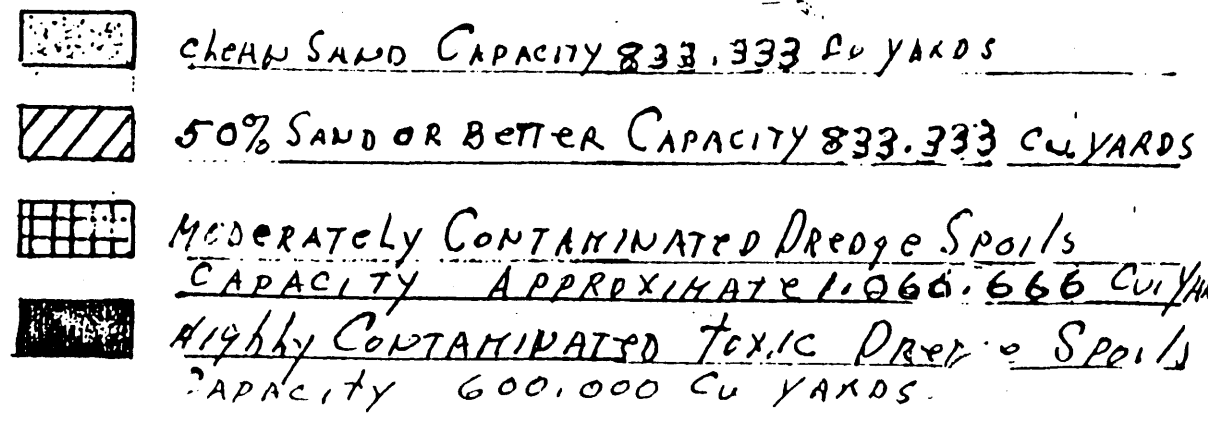 Clean Sand Capacity 833.333 Cu Yards
50% Sand or Better Capacity 833.333 Cu Yards
Moderately Contaminated Dredge Spoils
Capacity Approximate 1.066.666 Cu. Ya
Highly Contaminated Toxic Dredge Spoils
Capacity 600.000 Cu Yards.